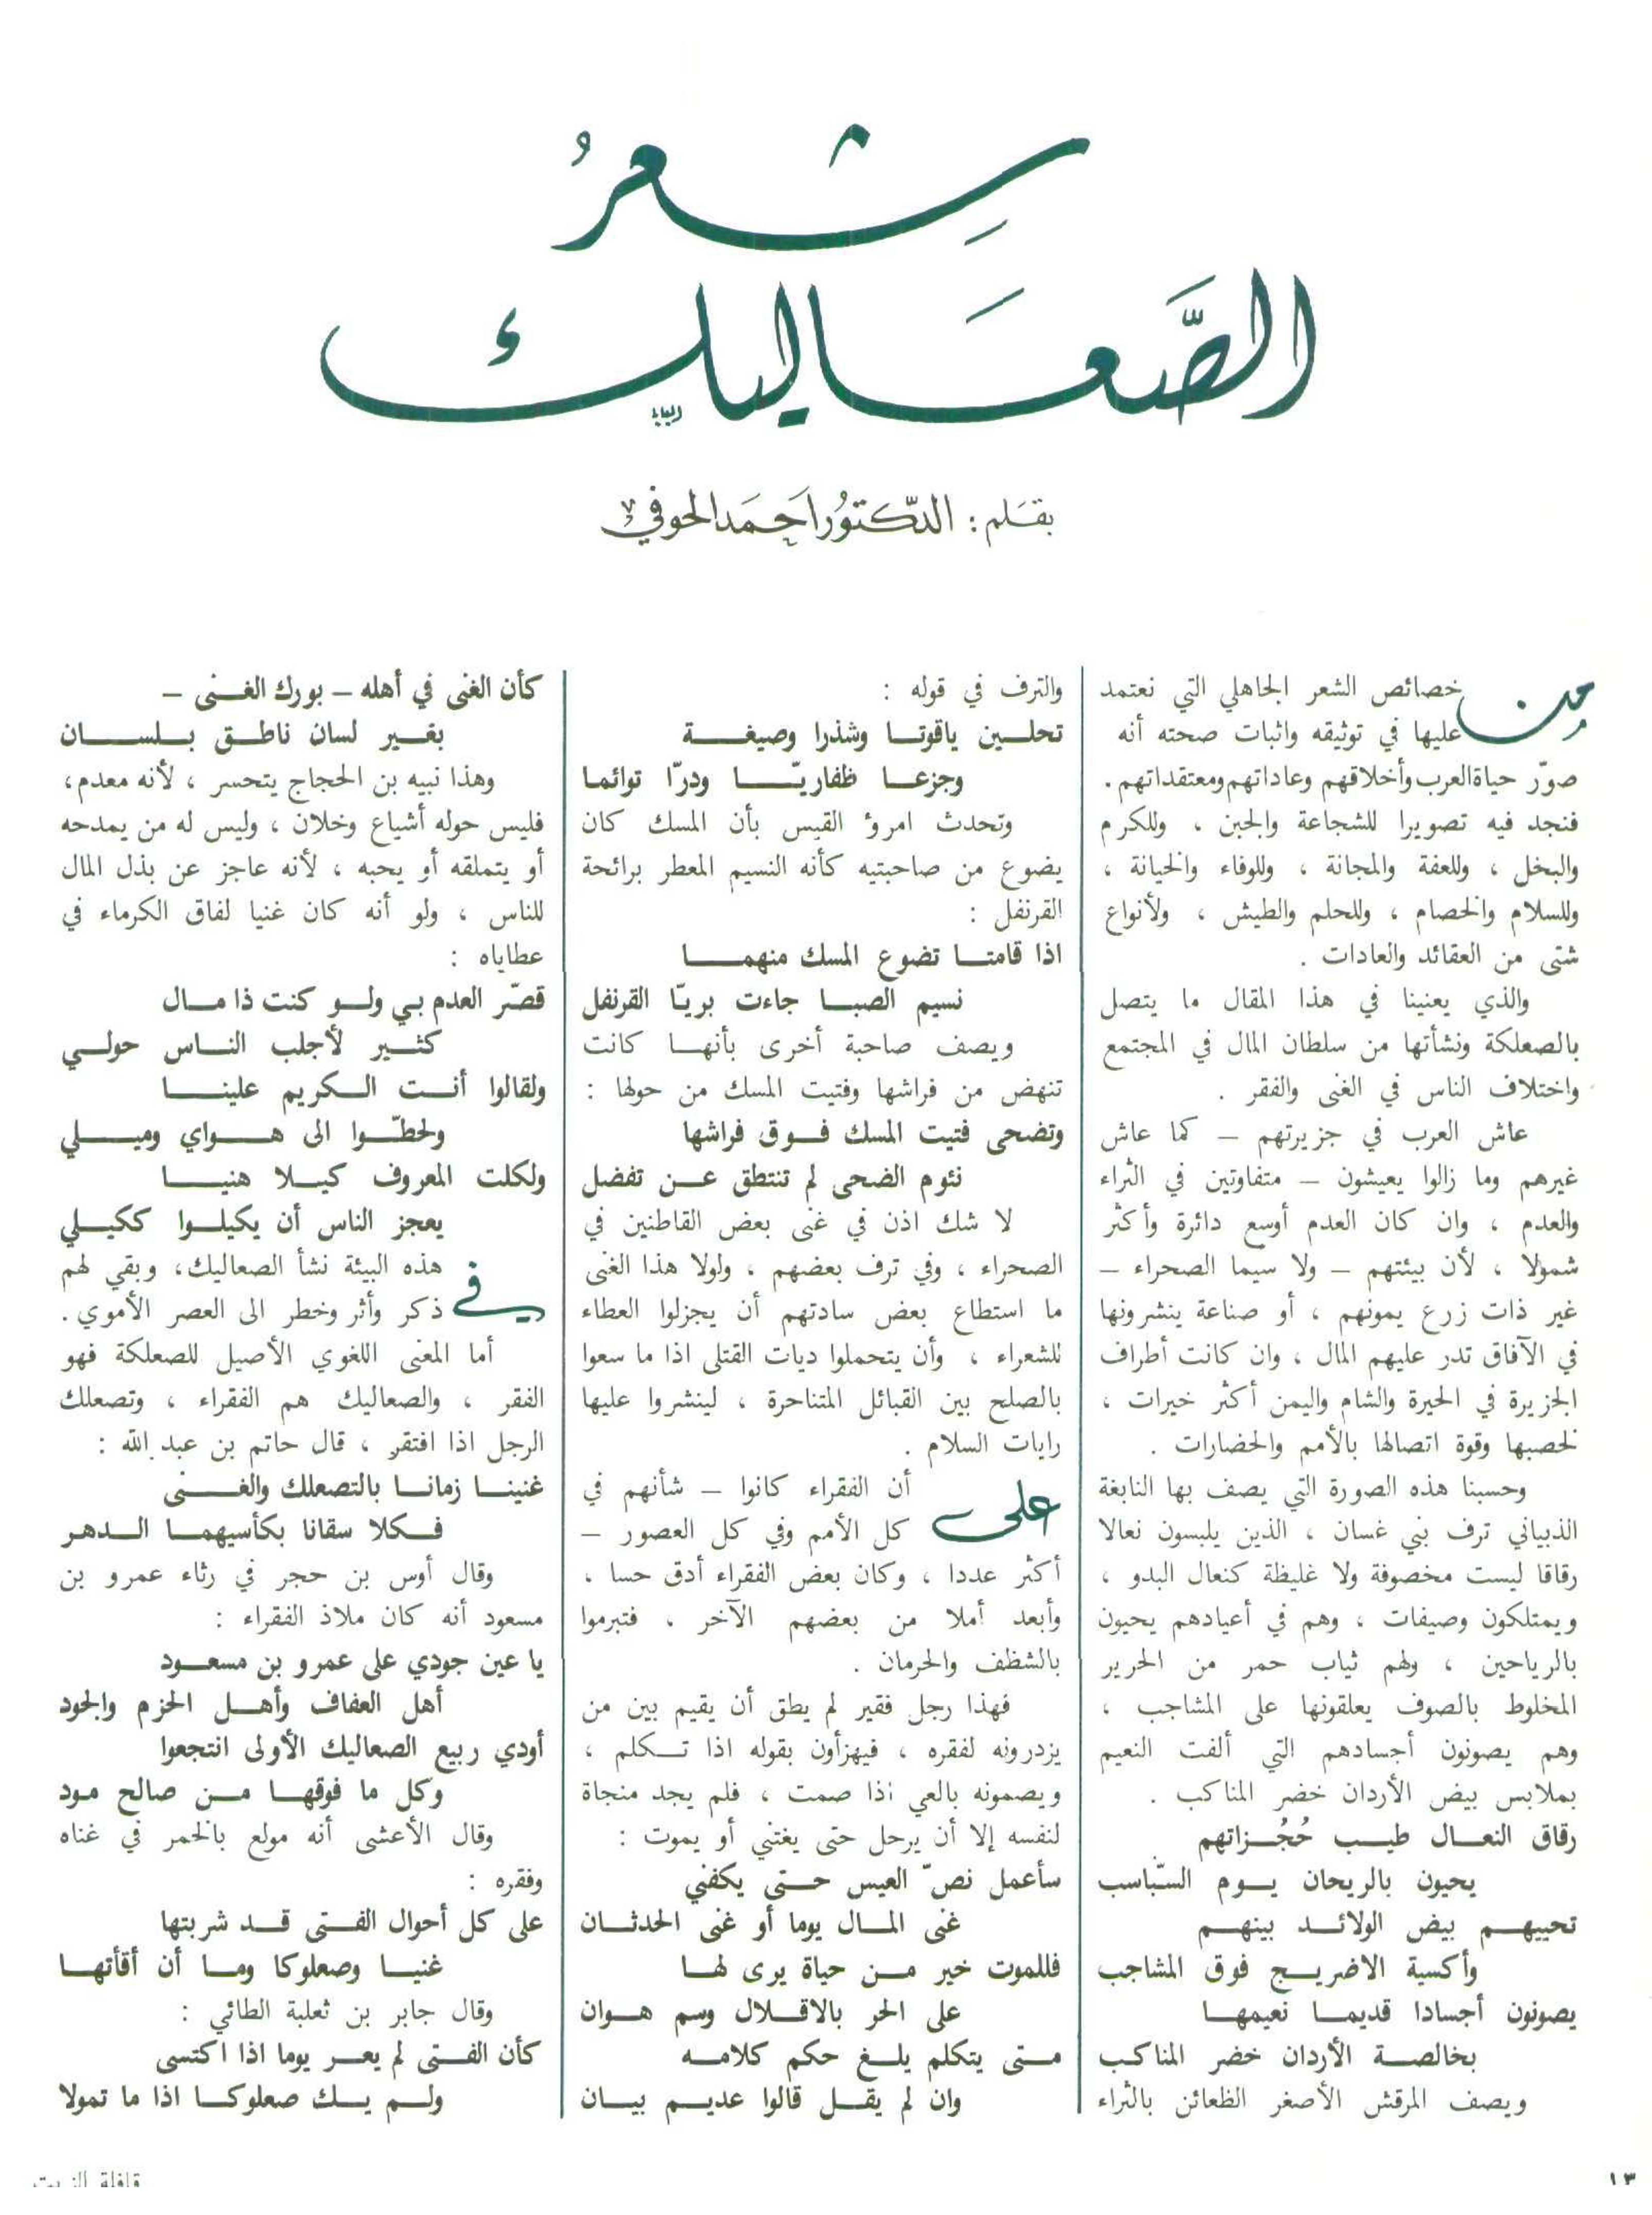 شِعرُ
الصَّعَاليك
بقَلم: الدّكتوُر اَحمَد الحوفي
من خصائص الشعر الجاهلي التي نعتمد
عليها في توثيقه واثبات صحته أنه
صوّر حياة العرب وأخلاقهم وعاداتهم ومعتقداتهم .
فنجد فيه تصويرا للشجاعة والجبن ، وللكرم
والبخل ، وللعفة والمجانة ، وللوفاء والخيانة ،
وللسلام والخصام ، وللحلم والطيش ، ولأنواع
شتى من العقائد والعادات .
والذي يعنينا في هذا المقال ما يتصل
بالصعلكة ونشأتها من سلطان المال في المجتمع
واختلاف الناس في الغنى والفقر .
عاش العرب في جزيرتهم – كما عاش
غيرهم وما زالوا يعيشون – متفاوتين في الثراء
والعدم ، وان كان العدم أوسع دائرة وأكثر
شمولا ، لأن بيئتهم – ولا سيما الصحراء –
غير ذات زرع يمونهم ، أو صناعة ينشرونها
في الآفاق تدر عليهم المال ، وان كانت أطراف
الجزيرة في الحيرة والشام واليمن أكثر خيرات ،
لخصبها وقوة اتصالها بالأمم والحضارات .
وحسبنا هذه الصورة التي يصف بها النابغة
الذبياني ترف بني غسان ، الذين يلبسون نعالا
رقاقا ليست مخصوفة ولا غليظة كنعال البدو ،
ويمتلكون وصيفات ، وهم في أعيادهم يحيون
بالرياحين ، ولهم ثياب حمر من الحرير
المخلوط بالصوف يعلقونها على المشاجب ،
وهم يصونون أجسادهم التي ألفت النعيم
بملابس بيض الأردان خضر المناكب .
رقاق النعـال طيـب حُجُـزاتهم
يحيون بالريحان يـوم السّباسب
تحييهـم بيض الولائـد بينهـم
وأكسية الاضريـج فوق المشاجب
يصونون أجسادا قديمـا نعيمهـا
بخالصـة الأردان خضر المناكب
ويصف المرقش الأصغر الظعائن بالثراء
والترف في قوله :
تحلـين ياقوتـا وشذرا وصيغـة
وجزعـا ظفاريّـا ودرّا توائما
وتحدث امرؤ القيس بأن المسك كان
يضوع من صاحبتيه كأنه النسيم المعطر برائحة
القرنفل :
اذا قامتـا تضوع المسك منهمـا
نسيم الصبـا جاءت بريّا القرنفل
ويصف صاحبة أخرى بأنهـا كانت
تنهض من فراشها وفتيت المسك من حولها :
وتضحى فتيت المسك فـوق فراشها
نئوم الضحى لم تنتطق عـن تفضل
لا شك اذن في غنى بعض القاطنين في
الصحراء ، وفي ترف بعضهم ، ولولا هذا الغنى
ما استطاع بعض سادتهم أن يجزلوا العطاء
للشعراء ، وأن يتحملوا ديات القتلى اذا ما سعوا
بالصلح بين القبائل المتناحرة ، لينشروا عليها
رايات السلام .
على أن الفقراء كانوا – شأنهم في
كل الأمم وفي كل العصور –
أكثر عددا ، وكان بعض الفقراء أدق حسا ،
وأبعد أملا من بعضهم الآخر . فتبرموا
بالشظف والحرمان .
فهذا رجل فقير لم يطق أن يقيم بين من
يزدرونه لفقره ، فيهزأون بقوله اذا تـكلم ،
ويصمونه بالعي اذا صمت ، فلم يجد منجاة
لنفسه إلا أن يرحل حتى يغتني أو يموت :
سأعمل نصّ العيس حـتى يكفني
غنى المـال يوما أو غنى الحدثـان
فللموت خير مـن حياة يرى لهـا
على الحر بالاقـلال وسم هـوان
متـى يتكلم يلـغ حكم كلامـه
وان لم يقـل قالوا عديـم بيـان
كأن الغنى في أهله – بورك الغـنى –
بغـير لسان ناطـق بـلسـان
وهذا نبيه بن الحجاج يتحسر ، لأنه معدم،
فليس حوله أشياع وخلان ، وليس له من يمدحه
أو يتملقه أو يحبه ، لأنه عاجز عن بذل المال
للناس ، ولو أنه كان غنيا لفاق الكرماء في
عطاياه :
قصّر العدم بي ولـو كنت ذا مـال
كثـير لأجلب النـاس حولـي
ولقالوا أنـت الـكريم علينـا
ولحطّـوا الى هـواي وميـلي
ولكلت المعروف كيـلا هنيـا
يعجز الناس أن يكيلـوا ككيـلي
في هذه البيئة نشأ الصعاليك، وبقي لهم
ذكر وأثر وخطر الى العصر الأموي .
أما المعنى اللغوي الأصيل للصعلكة فهو
الفقر ، والصعاليك هم الفقراء ، وتصعلك
الرجل اذا افتقر ، قال حاتم بن عبد الله :
غنينـا زمانـا بالتصعلك والغـنى
فـكلا سقانا بكأسيهمـا الـدهر
وقال أوس بن حجر في رثاء عمرو بن
مسعود أنه كان ملاذ الفقراء :
يا عين جودي على عمرو بن مسعـود
أهل العفاف وأهـل الحزم والجود
أودي ربيع الصعاليك الأولى انتجعوا
وكل ما فوقهـا مـن صالح مود
وقال الأعشى أنه مولع بالخمر في غناه
وفقره :
على كل أحوال الفـتى قـد شربتها
غنيـا وصعلوكا ومـا أن أقأتهـا
وقال جابر بن ثعلبة الطائي :
كأن الفـتى لم يعـر يوما اذا اكتسى
ولـم يـك صعلوكـا اذا ما تمولا
١٣
قافلة الزيت